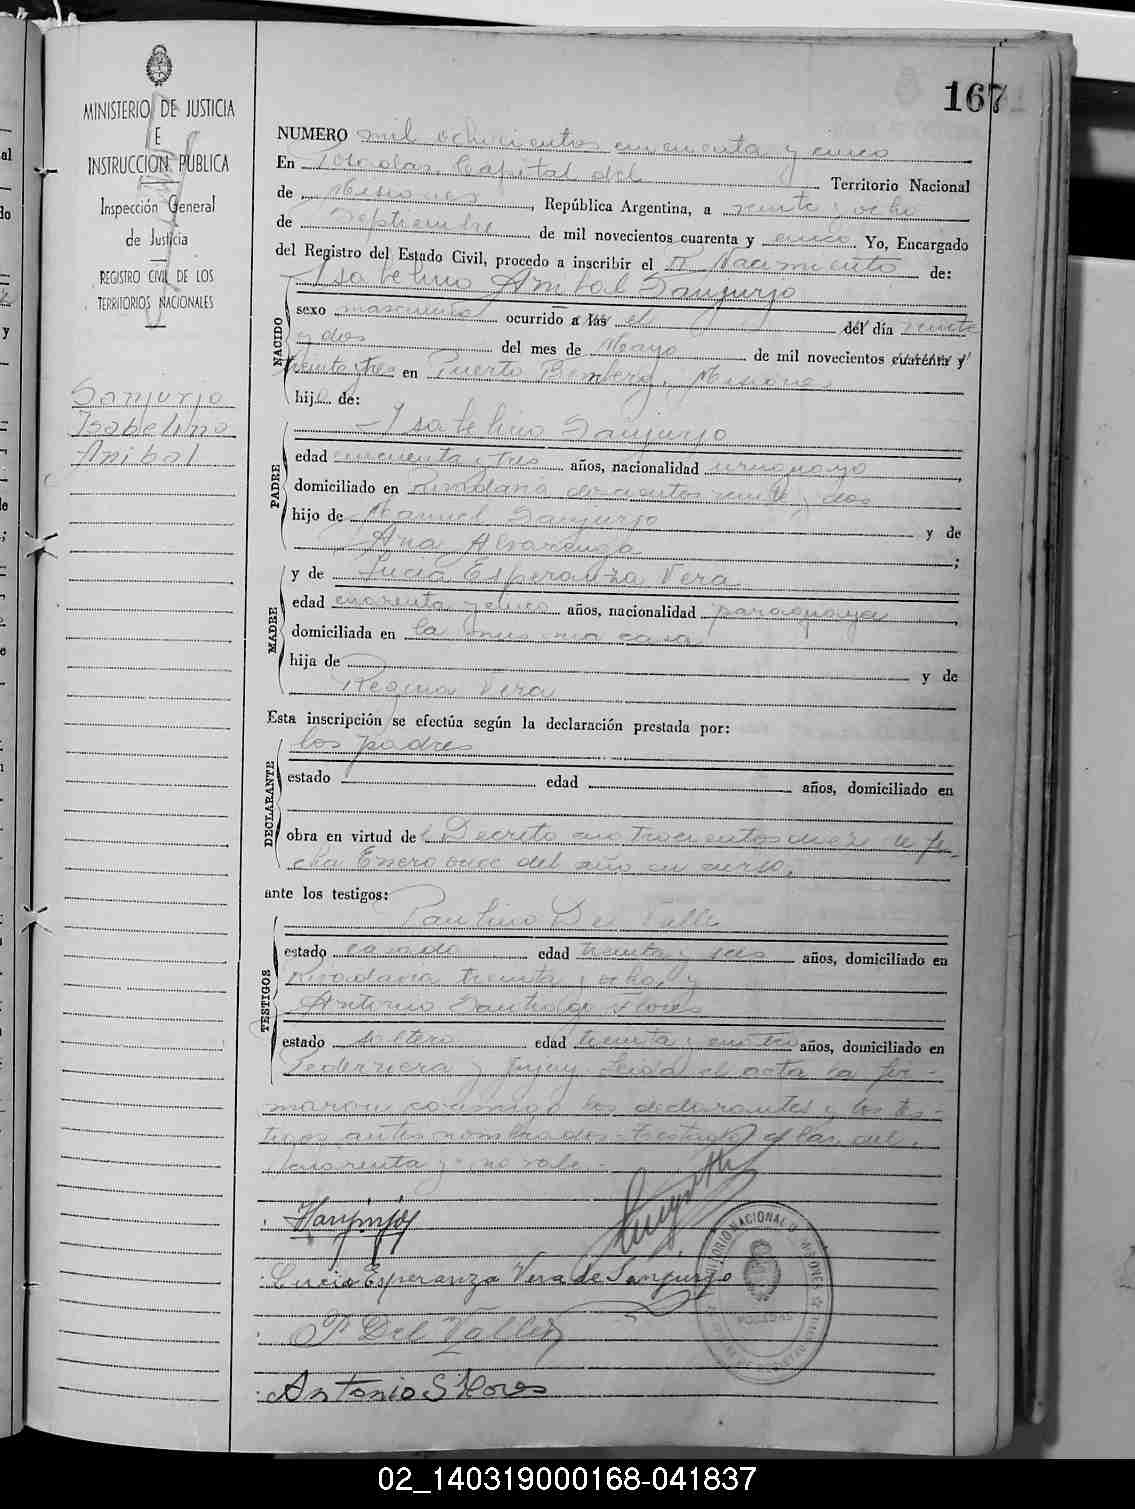 MINISTERIO DE JUSTICIA
E
INSTRUCCION PUBLICA
Inspección General
de Justicia
REGISTRO CIVIL DE LOS
TERRITORIOS NACIONALES
Sanjurjo
Isabelino
Anibal
167
NUMERO mil ochocientos cincuenta y cinco
En Posadas, Capital del Territorio Nacional
de Misiones, República Argentina, a veinte y ocho
de Septiembre de mil novecientos cuarenta y cinco. Yo, Encargado
del Registro del Estado Civil, procedo a inscribir el Nacimiento de:
Isabelino Anibal Sanjurjo
NACIDO
sexo masculino ocurrido a las el del día veinte
y dos del mes de Mayo de mil novecientos cuarenta y
treinta y tres en Puerto Bemberg, Misiones
hijo de:
PADRE
Isabelino Sanjurjo
edad cincuenta y tres años, nacionalidad uruguayo,
domiciliado en Rivadavia doscientos veinte y dos
hijo de Manuel Sanjurjo y de
Ana Alvarenga;
MADRE
y de Lucia Esperanza Vera
edad cuarenta y cinco años, nacionalidad paraguaya,
domiciliada en la misma casa
hija de y de
Regina Vera
Esta inscripción se efectúa según la declaración prestada por:
DECLARANTE
los padres
estado edad años, domiciliado en
obra en virtud del Decreto cuatrocientos diez de fe-
cha Enero once del año en curso,
ante los testigos:
TESTIGOS
Paulino Del Valle
estado casado edad treinta y seis años, domiciliado en
Rivadavia treinta y ocho, y
Antonio Santiago Flores
estado soltero edad treinta y cuatro años, domiciliado en
Pedernera y Jujuy. Leida el acta la fir-
maron conmigo los declarantes y los tes-
tigos antes nombrados. Testado: a las del.
cuarenta y no vale.
Lucia Esperanza Vera de Sanjurjo
P Del Valle
Antonio S Flores
TERRITORIO NACIONAL DE MISIONES
POSADAS
02_140319000168-041837